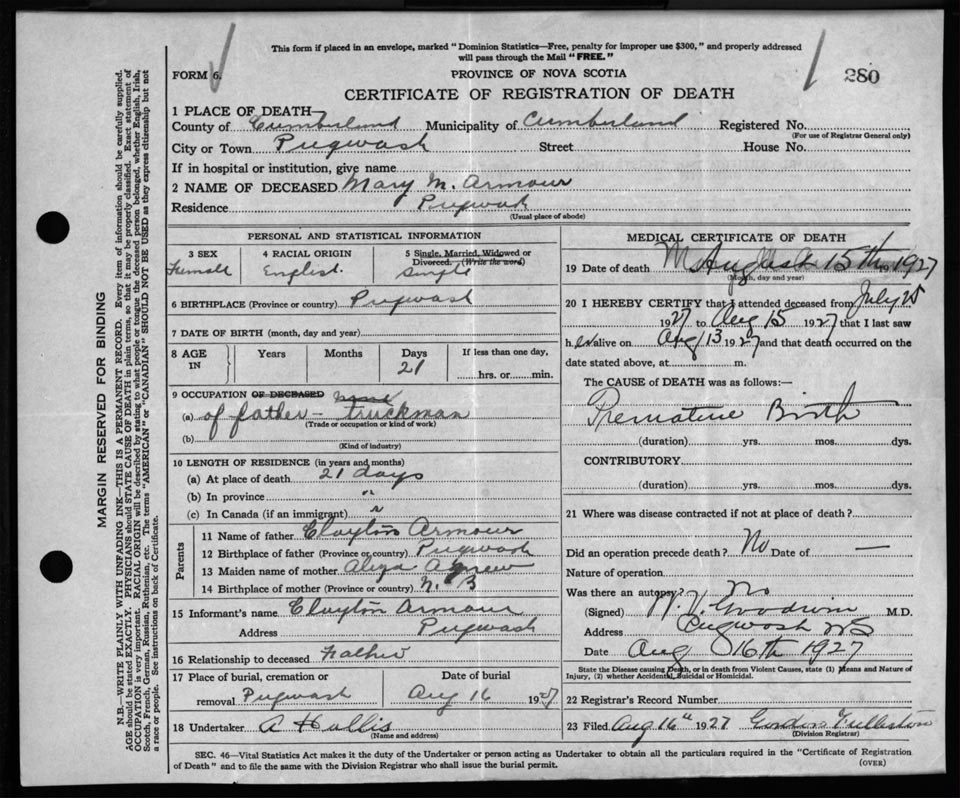 This form if placed in an envelope, marked "Dominion Statistics—Free, penalty for improper use $300," and properly addressed
will pass through the Mail "FREE."
FORM 6.
PROVINCE OF NOVA SCOTIA
280
CERTIFICATE OF REGISTRATION OF DEATH
1 PLACE OF DEATH—
County of Cumberland Municipality of Cumberland Registered No.
(For use of Registrar General only)
City or Town Pugwash Street House No.
If in hospital or institution, give name
2 NAME OF DECEASED Mary M. Armour
Residence Pugwash
(Usual place of abode)
PERSONAL AND STATISTICAL INFORMATION
3 SEX 4 RACIAL ORIGIN 5 Single, Married, Widowed or
Divorced, (Write the word)
Female English. Single
6 BIRTHPLACE (Province or country) Pugwash
7 DATE OF BIRTH (month, day and year)
8 AGE IN Years Months Days 21 If less than one day,
hrs. or min.
9 OCCUPATION OF DECEASED
(a) of father – truckman
(Trade or occupation or kind of work)
(b)
(Kind of industry)
10 LENGTH OF RESIDENCE (in years and months)
(a) At place of death 21 days
(b) In province "
(c) In Canada (if an immigrant) "
Parents
11 Name of father Clayton Armour
12 Birthplace of father (Province or country) Pugwash
13 Maiden name of mother Agnew
14 Birthplace of mother (Province or country) N. B
15 Informant's name Clayton Armour
Address Pugwash
16 Relationship to deceased Father
17 Place of burial, cremation or Date of burial
removal Pugwash Aug 16 1927
18 Undertaker A Hollis
(Name and address)
MEDICAL CERTIFICATE OF DEATH
19 Date of death August 15th 1927
(Month, day and year)
20 I HEREBY CERTIFY that I attended deceased from July 25
1927 to Aug 15 1927 that I last saw
her alive on Aug 13 1927 and that death occurred on the
date stated above, at m.
The CAUSE OF DEATH was as follows:—
Premature Birth
(duration) yrs. mos. dys.
CONTRIBUTORY
(duration) yrs. mos. dys.
21 Where was disease contracted if not at place of death?
Did an operation precede death? No Date of —
Nature of operation
Was there an autopsy? No
(Signed) Goodwin M.D.
Address Pugwash NS
Date Aug 16th 1927
State the Disease causing Death, or in death from Violent Causes, state (1) Means and Nature of
Injury, (2) whether Accidental, Suicidal or Homicidal.
22 Registrar's Record Number
23 Filed Aug 16th 1927 Gordon Fullerton
(Division Registrar)
SEC. 46—Vital Statistics Act makes it the duty of the Undertaker or person acting as Undertaker to obtain all the particulars required in the "Certificate of Registration
of Death" and to file the same with the Division Registrar who shall issue the burial permit.
(OVER)
MARGIN RESERVED FOR BINDING
N.B.—WRITE PLAINLY WITH UNFADING INK—THIS IS A PERMANENT RECORD. Every item of information should be carefully supplied.
AGE should be stated EXACTLY. PHYSICIANS should STATE CAUSE OF DEATH in plain terms, so that it may be properly classified. Exact statement of
OCCUPATION is very important. RACIAL ORIGIN will be described by stating to what people or tongue the deceased person belonged, whether English, Irish,
Scotch, French, German, Russian, Ruthenian, etc. The terms "AMERICAN" or "CANADIAN" SHOULD NOT BE USED as they express citizenship but not
a race or people. See instructions on back of Certificate.